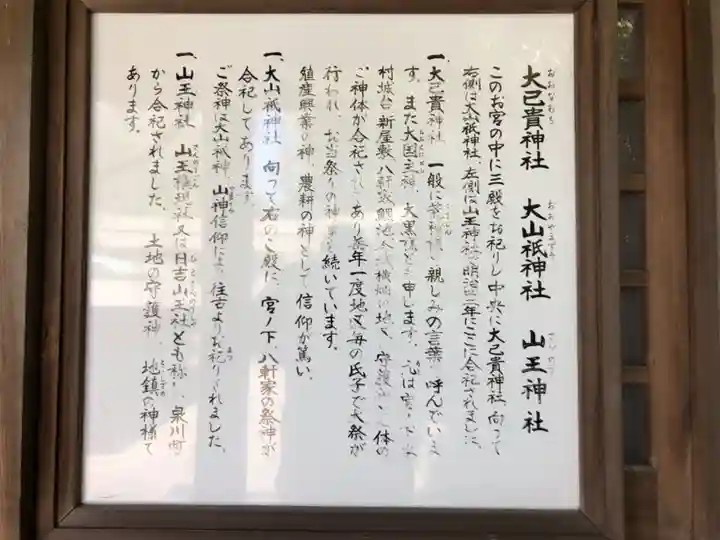 大己貴神社　大山祇神社　山王神社
このお宮の中に三殿をお祀りし中央に大己貴神社、向って
右側は大山祇神社、左側に山王神社で明治四三年にここに合祀されました。
一、大己貴神社　一般に 親しみの言葉で呼んでいま
す。また大国主神、大黒様とも申します。元は宮ノ下
村城台、新屋敷、八軒家、鯉池
ご神体が合祀されてあり、毎年一度地区毎の氏子で大祭が
行われ、お当祭りの神事も続いています。
殖産興業の神、農耕の神として信仰が篤い。
一、大山祇神社　向って右のご殿に、宮ノ下、八軒家の祭神が
合祀してあります。
ご祭神は大山祇神、山神信仰により往古よりお祀りされました。
一、山王神社　山王権現社又は日吉山王社とも称し、泉川町
から合祀されました。土地の守護神、地鎮の神様で
あります。